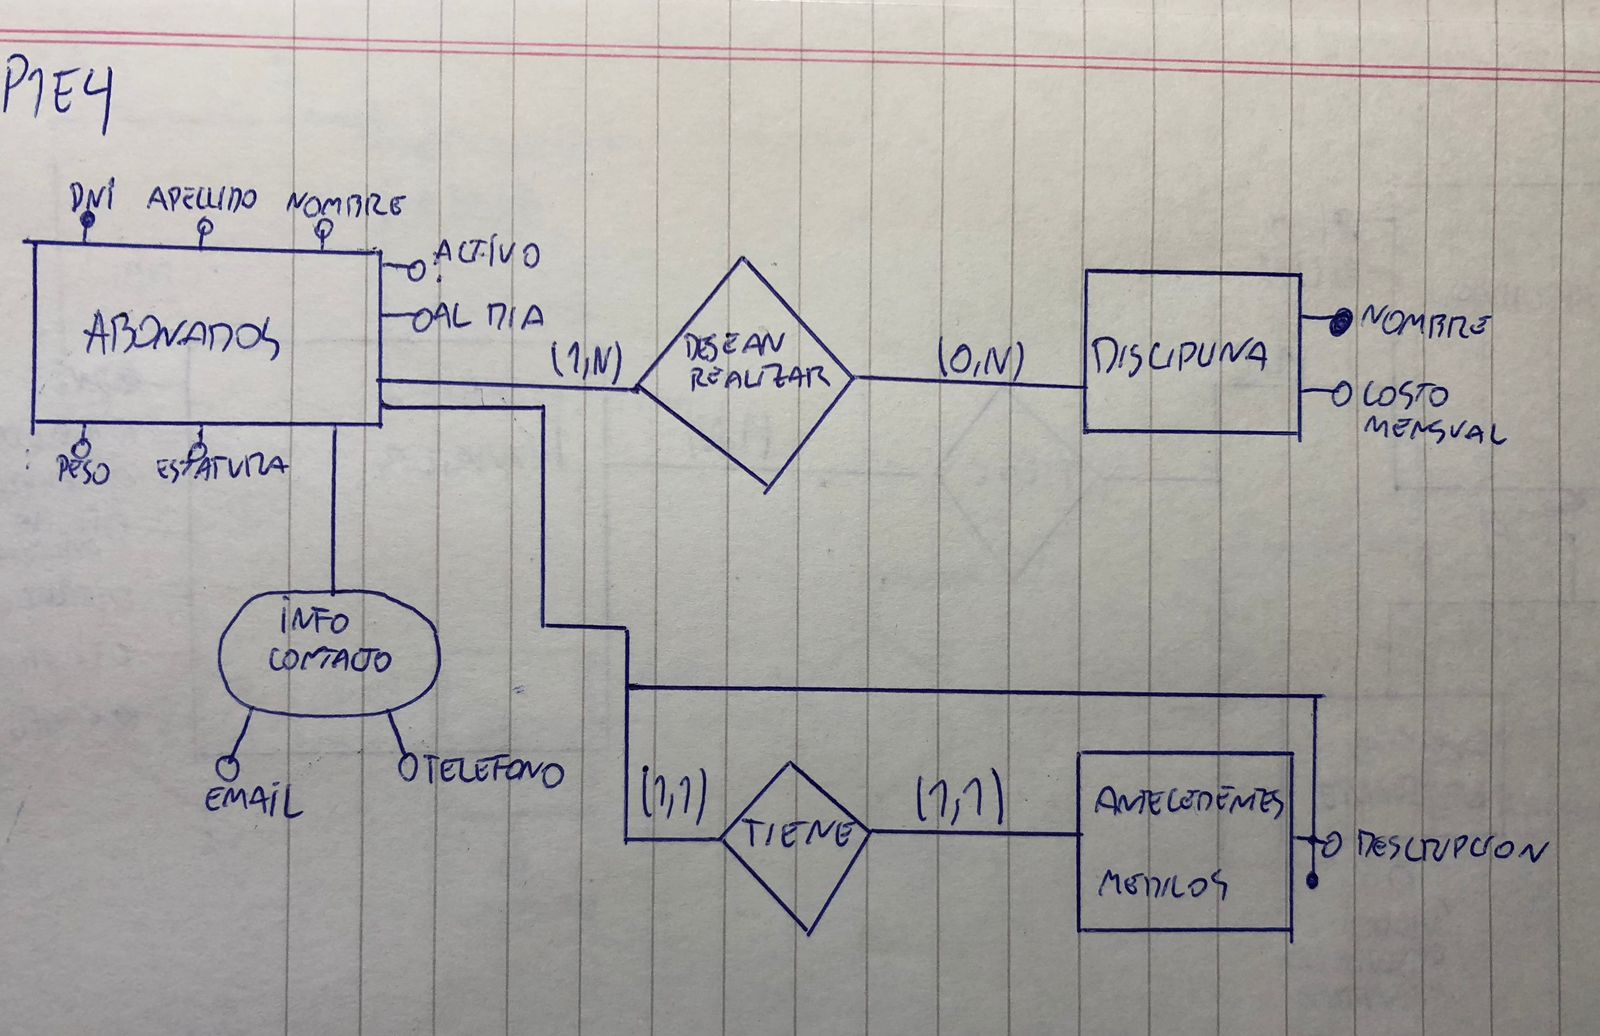 P1E4
DNI APELLIDO NOMBRE
ACTIVO
AL DIA
ABONADOS
PESO ESTATURA
(1,N)
DESEAN
REALIZAR
(0,N)
DISCIPLINA
NOMBRE
COSTO
MENSUAL
INFO
CONTACTO
EMAIL
TELEFONO
(1,1)
TIENE
(1,1)
ANTECEDENTES
MEDICOS
DESCRIPCION